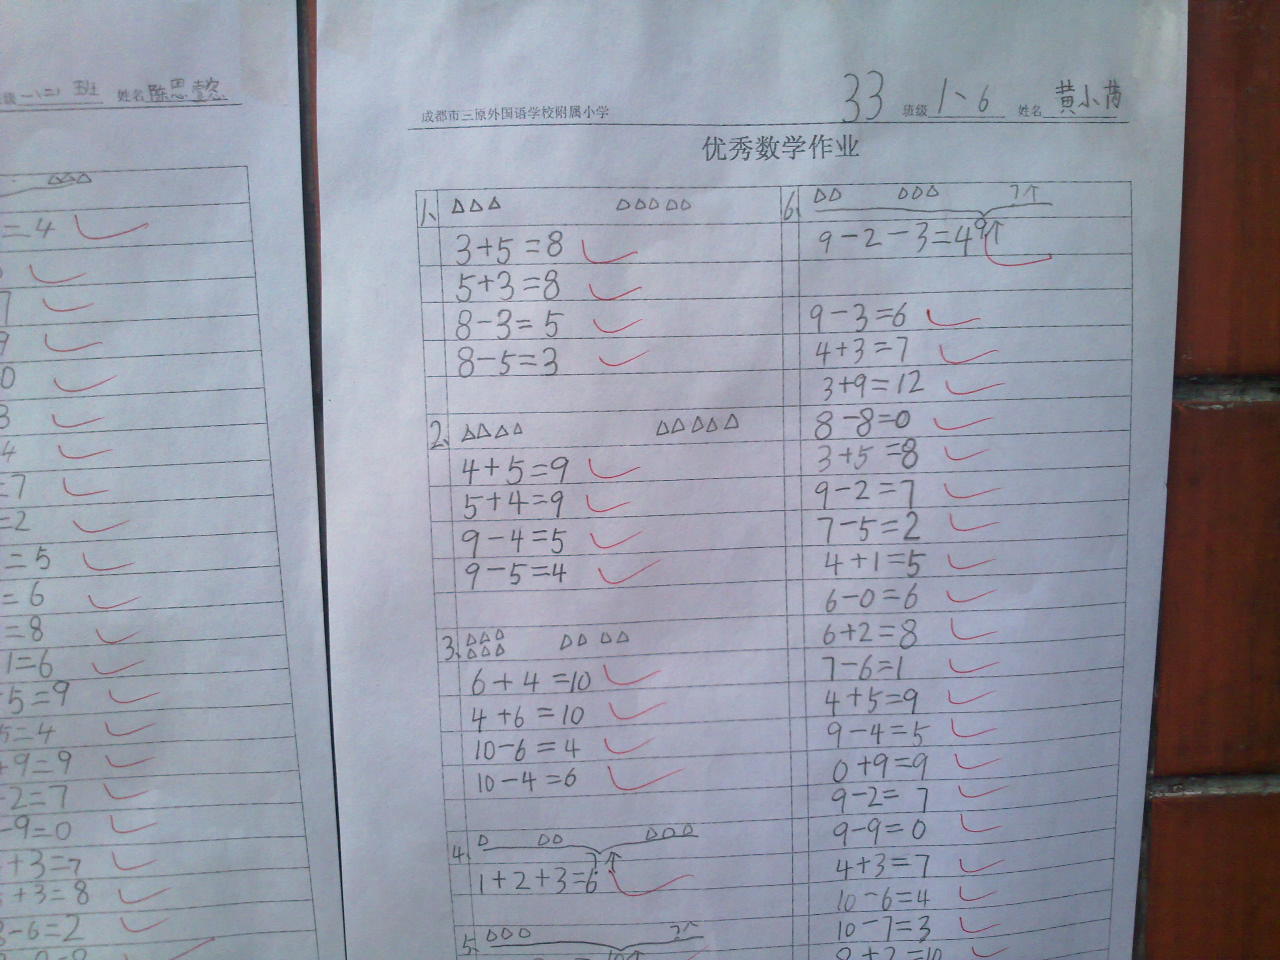 级 一(二) 班 姓名 陈思
=4
7
9
0
3
4
=7
=2
=5
=6
=8
1=6
5=9
5=4
+9=9
-2=7
-9=0
+3=7
+3=8
-6=2
成都市三原外国语学校附属小学
33 班级 1、6 姓名 黄小芮
优秀数学作业
1、
3+5=8
5+3=8
8-3=5
8-5=3
2、
4+5=9
5+4=9
9-4=5
9-5=4
3、
6+4=10
4+6=10
10-6=4
10-4=6
4、
?个
1+2+3=6
5、 2个
10个
6、 ?个
9个
9-2-3=4
9-3=6
4+3=7
3+9=12
8-8=0
3+5=8
9-2=7
7-5=2
4+1=5
6-0=6
6+2=8
7-6=1
4+5=9
9-4=5
0+9=9
9-2=7
9-9=0
4+3=7
10-6=4
10-7=3
8+2=10